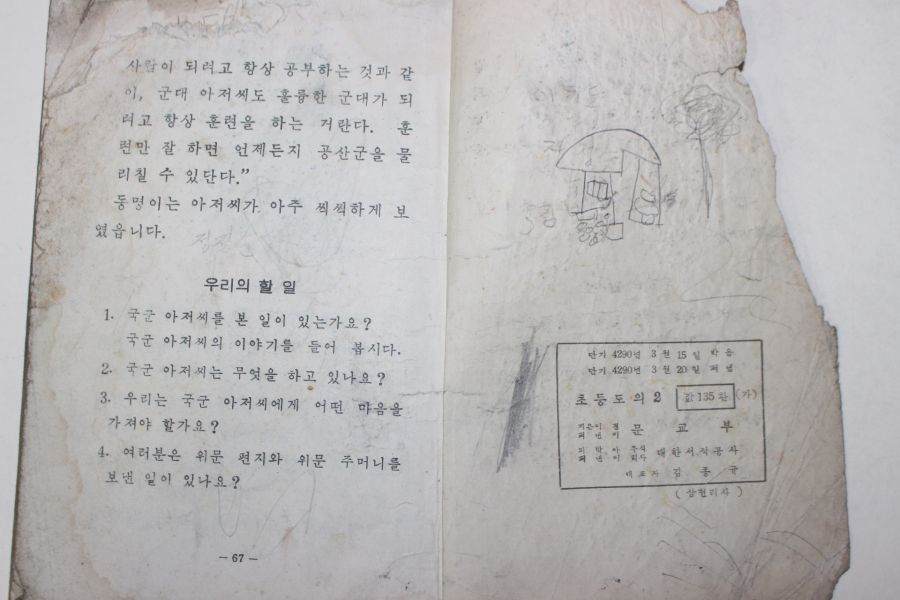 사람이 되려고 항상 공부하는 것과 같
이, 군대 아저씨도 훌륭한 군대가 되
려고 항상 훈련을 하는 거란다. 훈
련만 잘 하면 언제든지 공산군을 물
리칠 수 있단다.”
동명이는 아저씨가 아주 씩씩하게 보
였읍니다.
우리의 할 일
1. 국군 아저씨를 본 일이 있는가요?
국군 아저씨의 이야기를 들어 봅시다.
2. 국군 아저씨는 무엇을 하고 있나요?
3. 우리는 국군 아저씨에게 어떤 마음을
가져야 할가요?
4. 여러분은 위문 편지와 위문 주머니를
보낸 일이 있나요?
— 67 —
단기 4290년 3월 15일 박음
단기 4290년 3월 20일 펴냄
초등도의 2 값 135환 (가)
지은이 겸
펴낸이 문교부
박아 주식
펴낸이 회사 대한서적공사
대표자 김종규